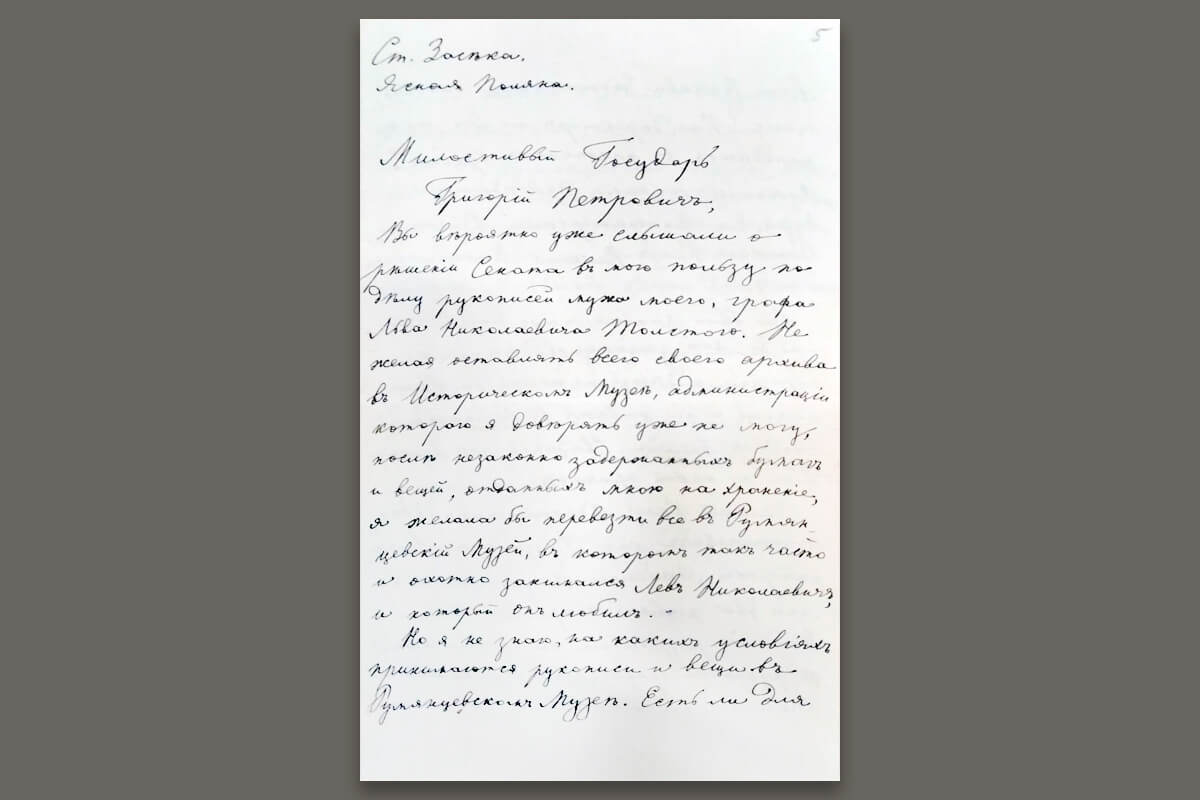 5
Ст. Засѣка.
Ясная Поляна.
Милостивый Государь
Григорій Петровичъ,
Вы вѣроятно уже слышали о
рѣшеніи Сената въ мою пользу по
дѣлу рукописей мужа моего, графа
Льва Николаевича Толстого. Не
желая оставлять всего своего архива
въ Историческомъ Музеѣ, администраціи
котораго я довѣрять уже не могу,
послѣ незаконно задержанныхъ бумагъ
и вещей, отданныхъ мною на храненіе,
я желала бы перевезти все въ Румян-
цевскій Музей, въ которомъ такъ часто
и охотно занимался Левъ Николаевичъ,
и который онъ любилъ. -
Но я не знаю, на какихъ условіяхъ
принимаются рукописи и вещи въ
Румянцевскомъ Музеѣ. Есть ли для